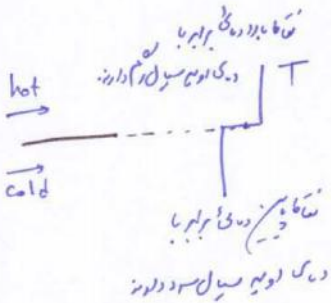 نقاط بالا دمائی برابر با
دمای اولیه سیال گرم دارند.
T
hot
cold
نقاط پایین دمائی برابر با
دمای اولیه سیال سرد دارند